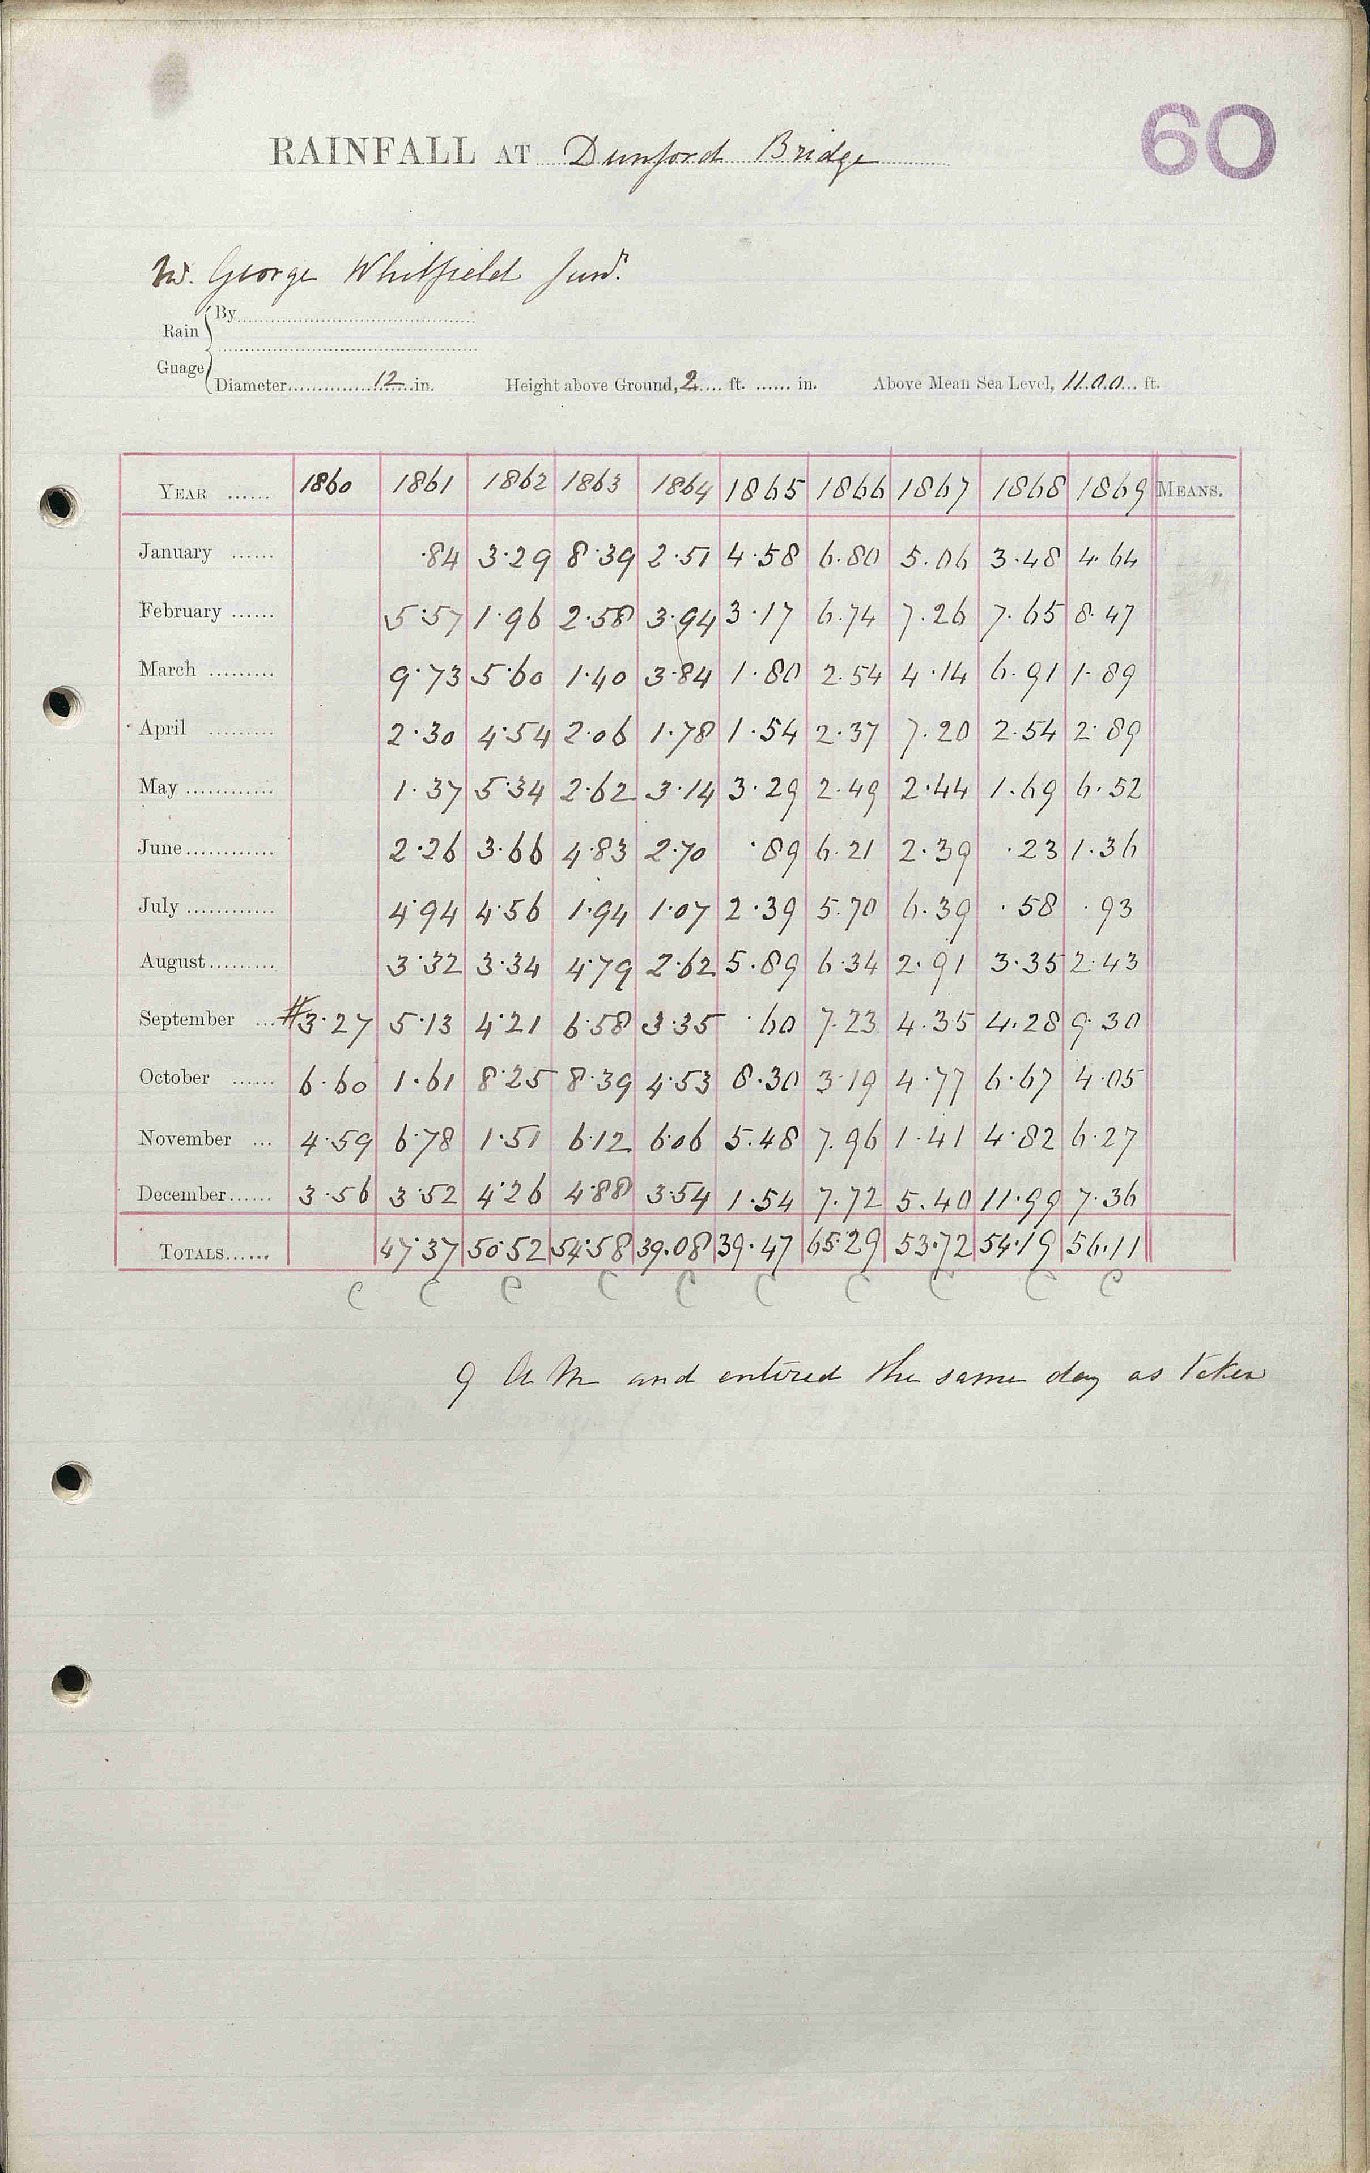 60
RAINFALL AT Dunford Bridge
George Whitfield Junr.
Rain Guage
By
Diameter 12 in. Height above Ground, 2 ft. in. Above Mean Sea Level, 1100 ft.
YEAR 1860 1861 1862 1863 1864 1865 1866 1867 1868 1869 MEANS.
January ·84 3·29 8·39 2·51 4·58 6·80 5·06 3·48 4·64
February 5·57 1·96 2·58 3·94 3·17 6·74 7·26 7·65 8·47
March 9·73 5·60 1·40 3·84 1·80 2·54 4·14 6·91 1·89
April 2·30 4·54 2·06 1·78 1·54 2·37 7·20 2·54 2·89
May 1·37 5·34 2·62 3·14 3·29 2·49 2·44 1·69 6·52
June 2·26 3·66 4·83 2·70 ·89 6·21 2·39 ·23 1·36
July 4·94 4·56 1·94 1·07 2·39 5·70 6·39 ·58 ·93
August 3·32 3·34 4·79 2·62 5·89 6·34 2·91 3·35 2·43
September #3·27 5·13 4·21 6·58 3·35 ·60 7·23 4·35 4·28 9·30
October 6·60 1·61 8·25 8·39 4·53 8·30 3·19 4·77 6·67 4·05
November 4·59 6·78 1·51 6·12 6·06 5·48 7·96 1·41 4·82 6·27
December 3·56 3·52 4·26 4·88 3·54 1·54 7·72 5·40 11·99 7·36
TOTALS 47·37 50·52 54·58 39·08 39·47 65·29 53·72 54·19 56·11
C C C C C C C C C C
9 A M and entered the same day as taken